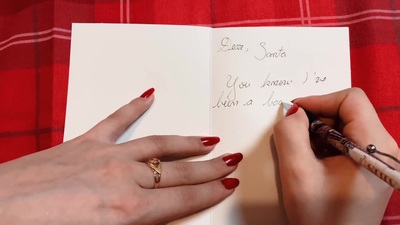 Dear, Santa
You know I've
been a